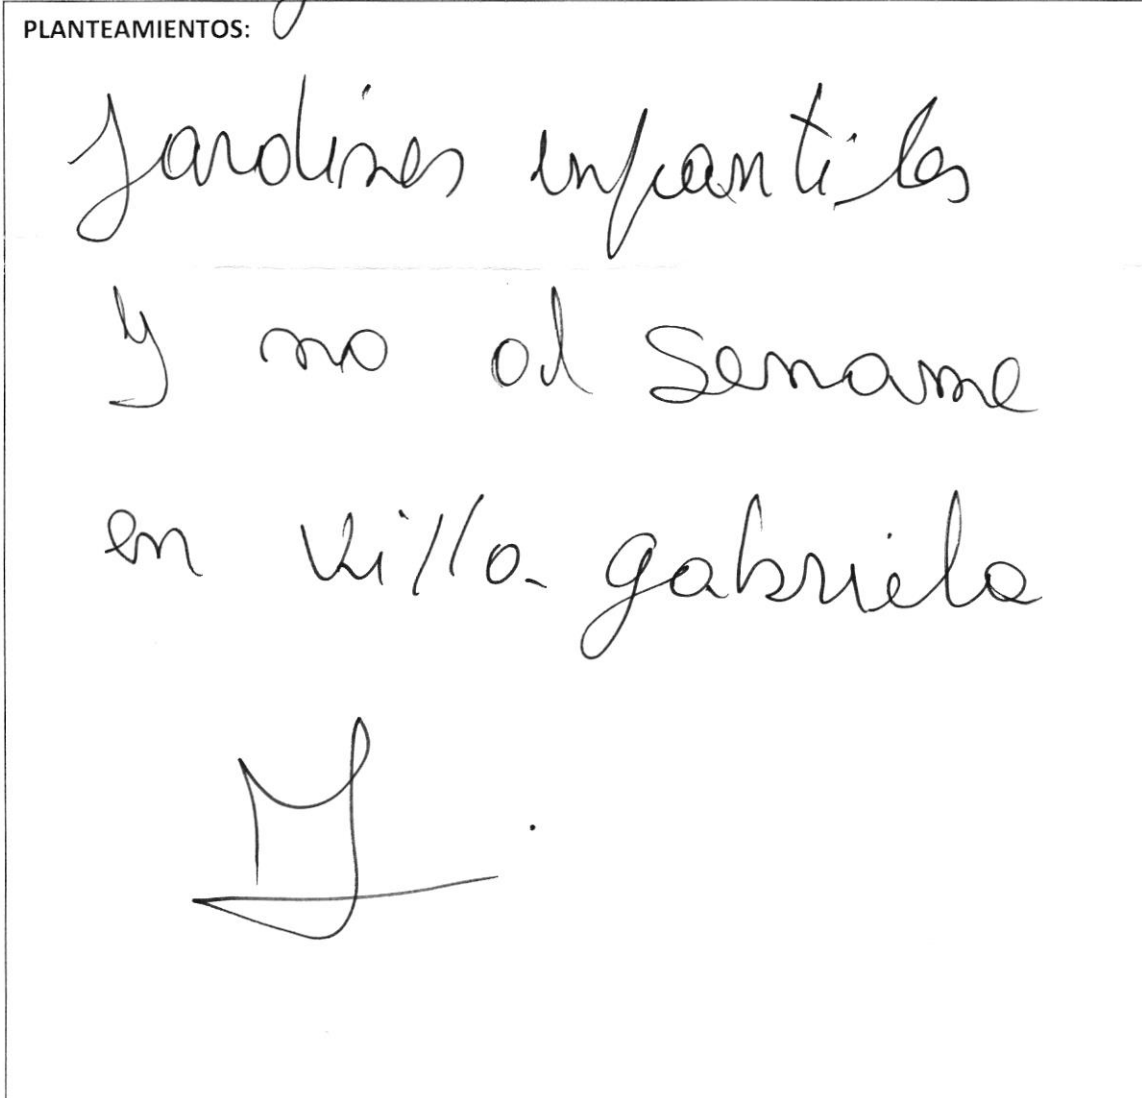 PLANTEAMIENTOS:
Jardines infantiles
y no al Sename
en Villa gabriela